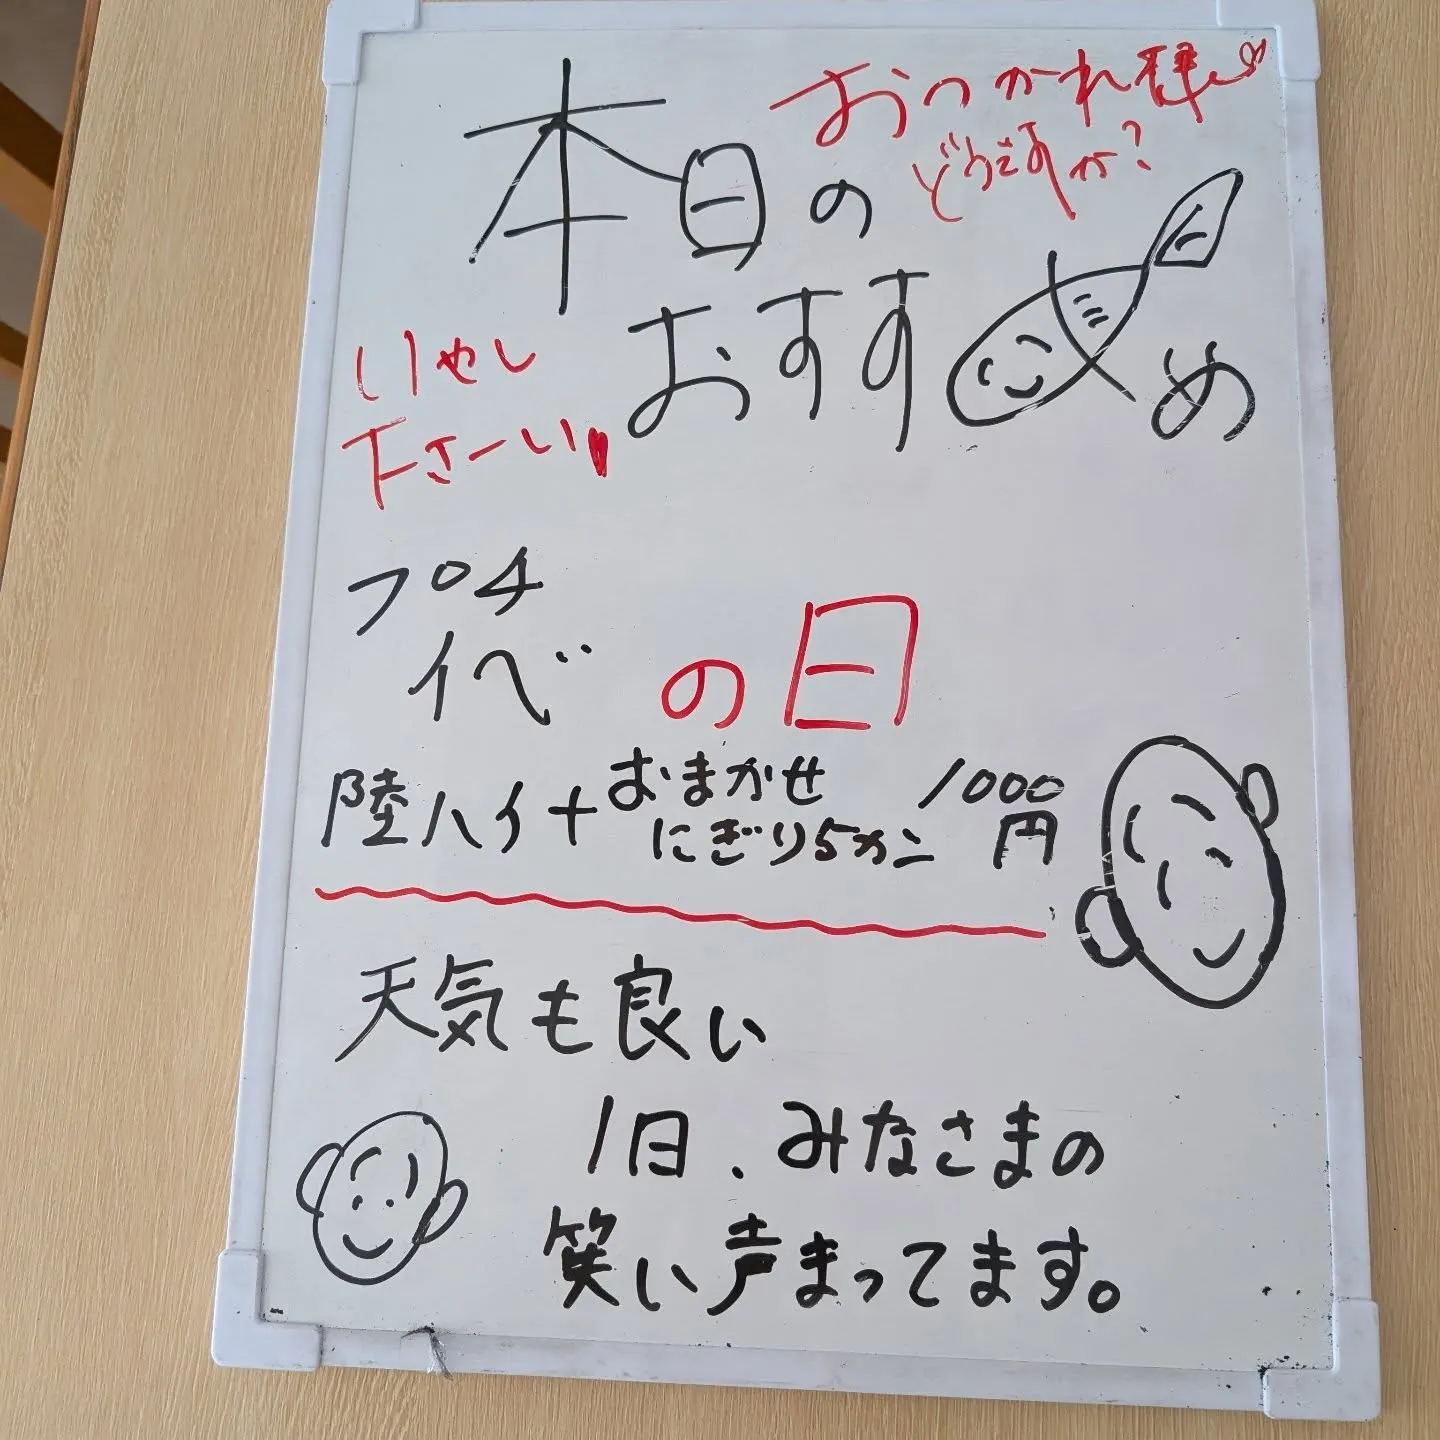 おつかれ様
どうですか?
本日の
おすすめ
いやし
下さーい
プチ
イベ の日
陸ハイ+おまかせ
にぎり5カン 1000
円
天気も良い
1日、みなさまの
笑い声まってます。